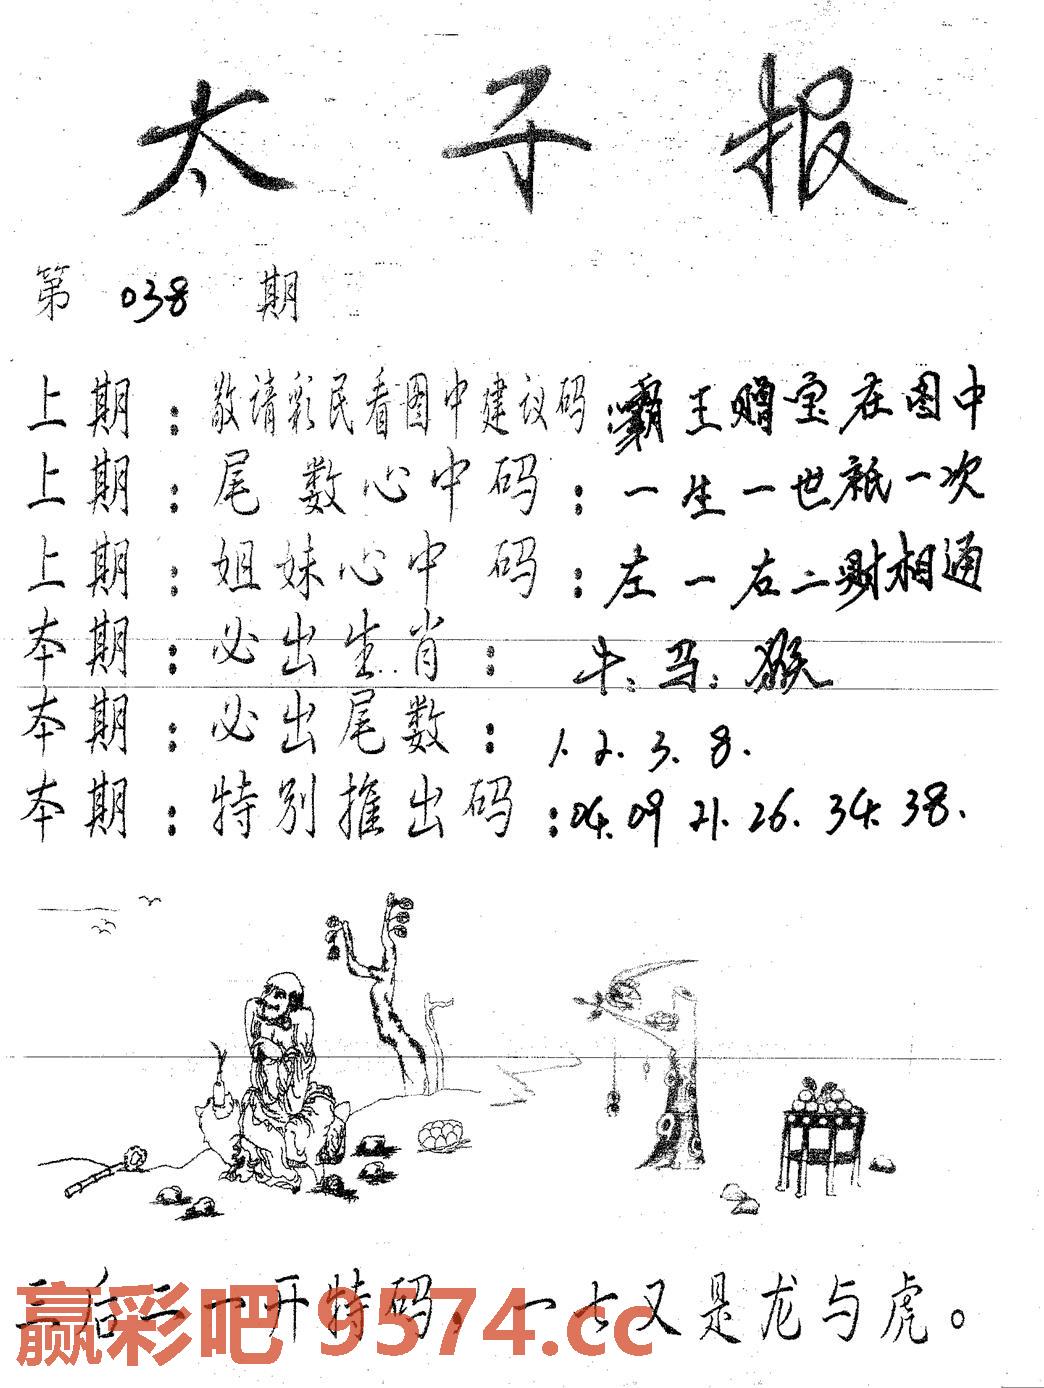 太子报
第 038 期
上期：敬请彩民看图中建议码：霸王赠宝在图中
上期：尾数心中码：一生一世祇一次
上期：姐妹心中码：左一右二财相通
本期：必出生肖：牛.马.猴
本期：必出尾数：1.2.3.8.
本期：特别推出码：04.09 21.26.34.38.
三后二一开特码，一七又是龙与虎。
赢彩吧 9574.cc